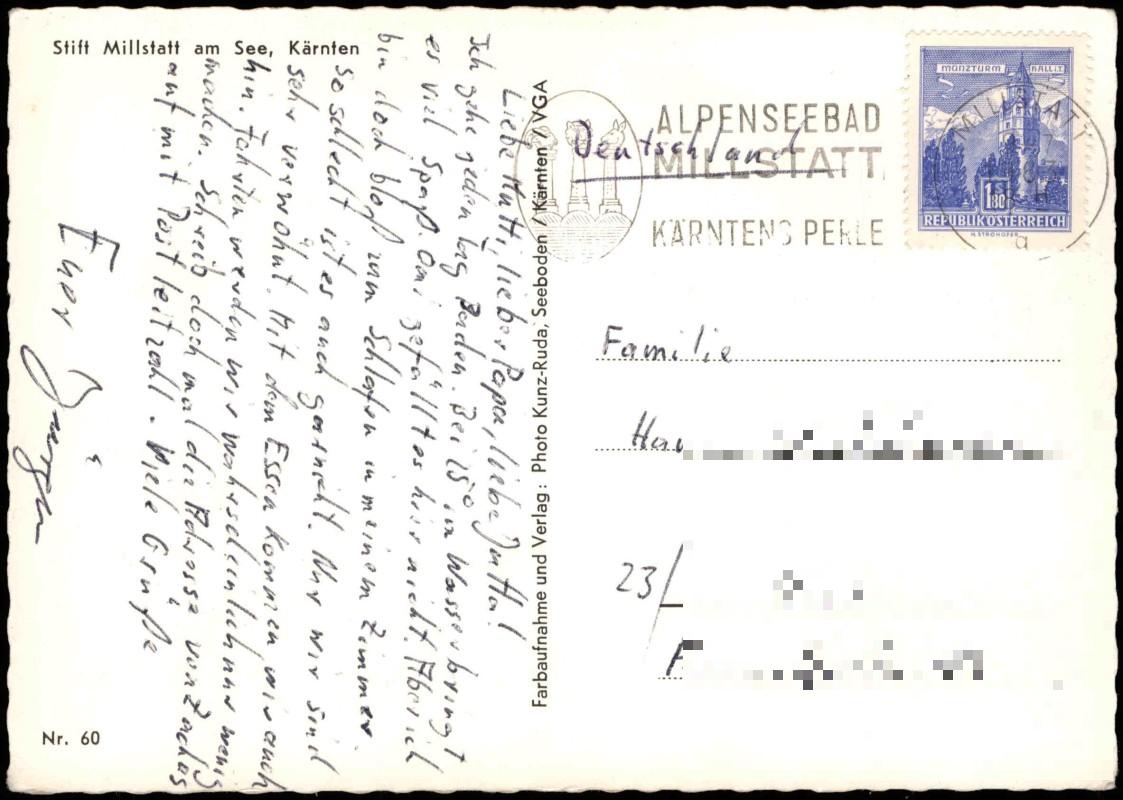 Stift Millstatt am See, Kärnten
Liebe Mutti, lieber Papa, liebe Jutta!
Ich gehe jeden Tag Baden. Bei 15° im Wasser bringt
es viel Spaß. Omi gefällt es hier nicht. Aber ich
bin doch bloß zum Schlafen in meinem Zimmer.
So schlecht ist es auch garnicht. Nur wir sind
sehr verwöhnt. Mit dem Essen kommen wir auch
hin. Fahrten werden wir wahrscheinlich nur wenig
machen. Schreib doch mal die Adresse von
auf mit Postleitzahl. Viele Grüße
Euer Jürgen
Nr. 60
Farbaufnahme und Verlag: Photo Kunz-Ruda, Seeboden / Kärnten / VGA
ALPENSEEBAD
MILLSTATT
KÄRNTENS PERLE
Deutschland
MÜNZTURM HALL i.T.
1.80
REPUBLIK ÖSTERREICH
H. STROHOFER
MILLSTATT
a
Familie
23/